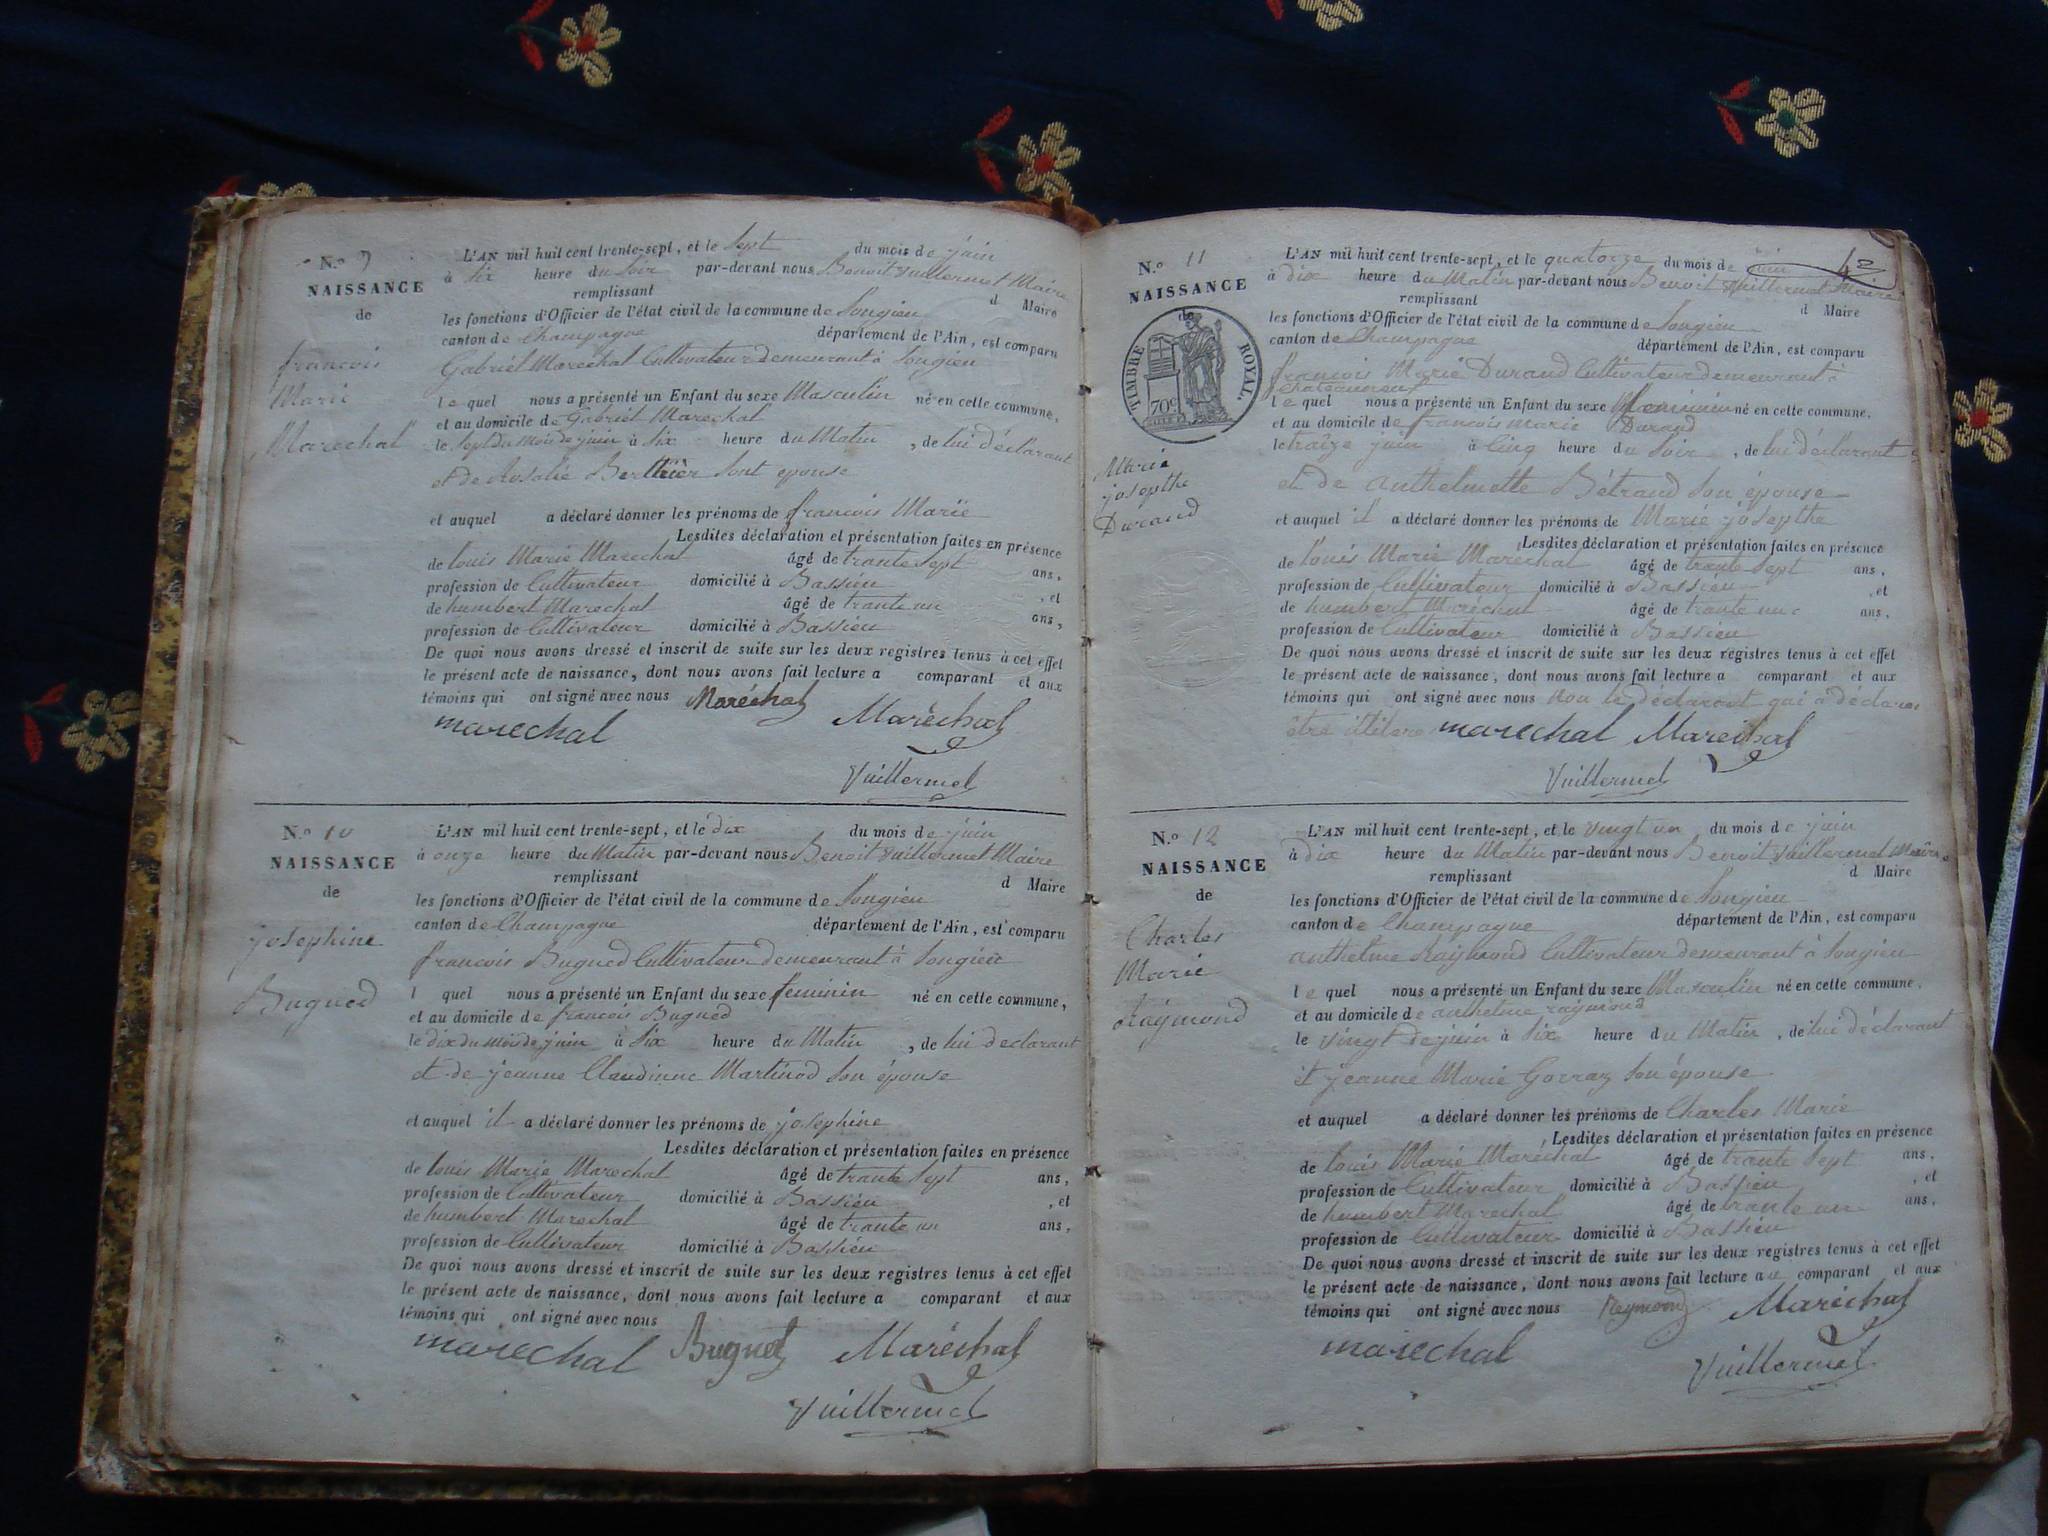 N.o 9
NAISSANCE
de
francois
Marie
Marechal
L'AN mil huit cent trente-sept, et le Sept du mois de juin
à Six heure du Soir par-devant nous Benoit Vuillermet Maire
remplissant d Maire
les fonctions d'Officier de l'état civil de la commune de Songieu
canton de Champagne département de l'Ain, est comparu
Gabriel Marechal Cultivateur demeurant à Songieu
le quel nous a présenté un Enfant du sexe Masculin né en cette commune,
et au domicile de Gabriel Marechal
le Sept du mois de juin à Six heure du Matin, de lui déclarant
et de Rosalie Berthier Sont epouse
et auquel a déclaré donner les prénoms de francois Marie
Lesdites déclaration et présentation faites en présence
de louis Marie Marechal âgé de trante Sept ans,
profession de Cultivateur domicilié à Bassieu, et
de humbert Marechal âgé de trante un ans,
profession de Cultivateur domicilié à Bassieu
De quoi nous avons dressé et inscrit de suite sur les deux registres tenus à cet effet
le présent acte de naissance, dont nous avons fait lecture a comparant et aux
témoins qui ont signé avec nous Maréchal
marechal Maréchal
Vuillermet
N.o 10
NAISSANCE
de
josephine
Bugned
L'AN mil huit cent trente-sept, et le dix du mois de juin
à onze heure du Matin par-devant nous Benoit Vuillermet Maire
remplissant d Maire
les fonctions d'Officier de l'état civil de la commune de Songieu
canton de Champagne département de l'Ain, est comparu
francois Bugned Cultivateur demeurant à Songieu
l quel nous a présenté un Enfant du sexe feminin né en cette commune,
et au domicile de francois Bugned
le dix du mois de juin à Six heure du Matin, de lui declarant
et de jeanne Claudinne Martinod Son épouse
et auquel il a déclaré donner les prénoms de josephine
Lesdites déclaration et présentation faites en présence
de louis Marie Marechal âgé de trante Sept ans,
profession de Cultivateur domicilié à Bassieu, et
de humbert Marechal âgé de trante un ans,
profession de Cultivateur domicilié à Bassieu
De quoi nous avons dressé et inscrit de suite sur les deux registres tenus à cet effet
le présent acte de naissance, dont nous avons fait lecture a comparant et aux
témoins qui ont signé avec nous
marechal Bugnet Maréchal
Vuillermet
N.o 11
NAISSANCE
de
TIMBRE ROYAL.
70c
Marie
josepthe
Durand
L'AN mil huit cent trente-sept, et le quatorze du mois de juin
à dix heure du Matin par-devant nous Benoit Vuillermet Maire
remplissant d Maire
les fonctions d'Officier de l'état civil de la commune de Songieu
canton de Champagne département de l'Ain, est comparu
francois Marie Durand Cultivateur demeurant à
le quel nous a présenté un Enfant du sexe feminin né en cette commune,
et au domicile de francois marie Durand
le traize juin à Cinq heure du Soir, de lui déclarant
et de anthelmette Bétrand Son épouse
et auquel il a déclaré donner les prénoms de Marie josepthe
Lesdites déclaration et présentation faites en présence
de louis Marie Maréchal âgé de trante Sept ans,
profession de Cultivateur domicilié à Bassieu, et
de humbert Maréchal âgé de trante un ans,
profession de Cultivateur domicilié à Bassieu
De quoi nous avons dressé et inscrit de suite sur les deux registres tenus à cet effet
le présent acte de naissance, dont nous avons fait lecture a comparant et aux
témoins qui ont signé avec nous non le déclarant qui a déclaré
être illitere marechal Maréchal
Vuillermet
N.o 12
NAISSANCE
de
Charles
Marie
Raymond
L'AN mil huit cent trente-sept, et le vingt un du mois de juin
à dix heure du Matin par-devant nous Benoit Vuillermet Maire
remplissant d Maire
les fonctions d'Officier de l'état civil de la commune de Songieu
canton de Champagne département de l'Ain, est comparu
anthelme Raymond Cultivateur demeurant à Songieu
le quel nous a présenté un Enfant du sexe Masculin né en cette commune,
et au domicile de anthelme raymond
le vingt de juin à Six heure du Matin, de lui déclarant
et jeanne Marie Gorraz Son épouse
et auquel a déclaré donner les prénoms de Charles Marie
Lesdites déclaration et présentation faites en présence
de louis Marie Maréchal âgé de trante Sept ans,
profession de Cultivateur domicilié à Bassieu, et
de humbert Marechal âgé de trante un ans,
profession de Cultivateur domicilié à Bassieu
De quoi nous avons dressé et inscrit de suite sur les deux registres tenus à cet effet
le présent acte de naissance, dont nous avons fait lecture au comparant et aux
témoins qui ont signé avec nous Reymond Maréchal
marechal
Vuillermet